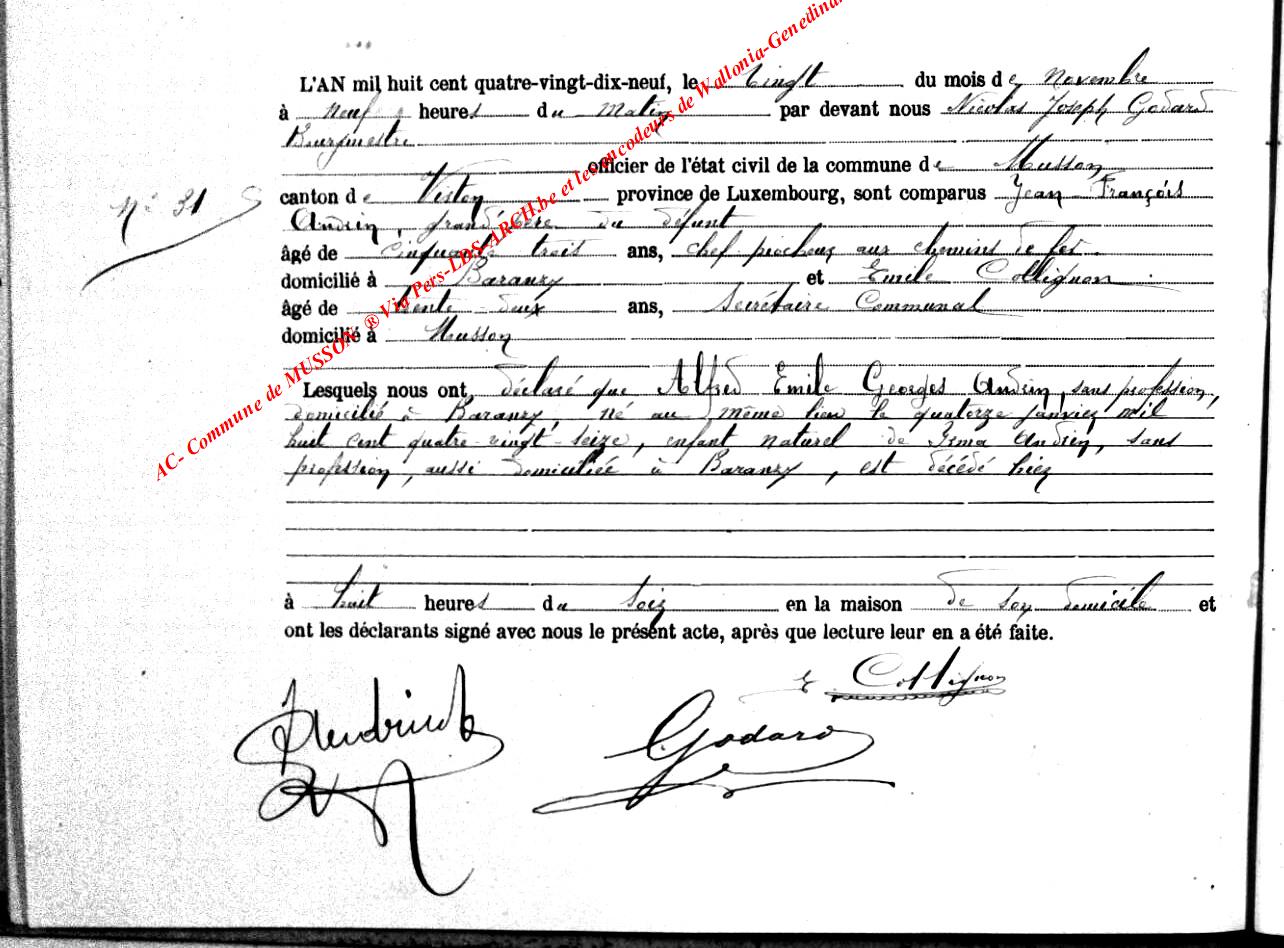 L'AN mil huit cent quatre-vingt-dix-neuf, le vingt du mois de Novembre
à neuf heures du matin par devant nous Nicolas Joseph Godard
Bourgmestre
officier de l'état civil de la commune de Musson,
N° 31
canton de Virton province de Luxembourg, sont comparus Jean-François
Andrin, grand-père du défunt
âgé de cinquante trois ans, chef piocheur aux chemins de fer
domicilié à Baranzy et Emile Collignon
âgé de trente-deux ans, Secrétaire Communal
domicilié à Musson
Lesquels nous ont déclaré que Alfred Emile Georges Andrin, sans profession,
domicilié à Baranzy, né au même lieu le quatorze janvier mil
huit cent quatre-vingt-seize, enfant naturel de Irma Andrin, sans
profession, aussi domiciliée à Baranzy, est décédé hier
à huit heures du soir en la maison de son domicile et
ont les déclarants signé avec nous le présent acte, après que lecture leur en a été faite.
E Collignon
Godard
AC- Commune de MUSSON ® Via Pers-LDS-ARCH.be et les encodeurs de Wallonia-Genedinar